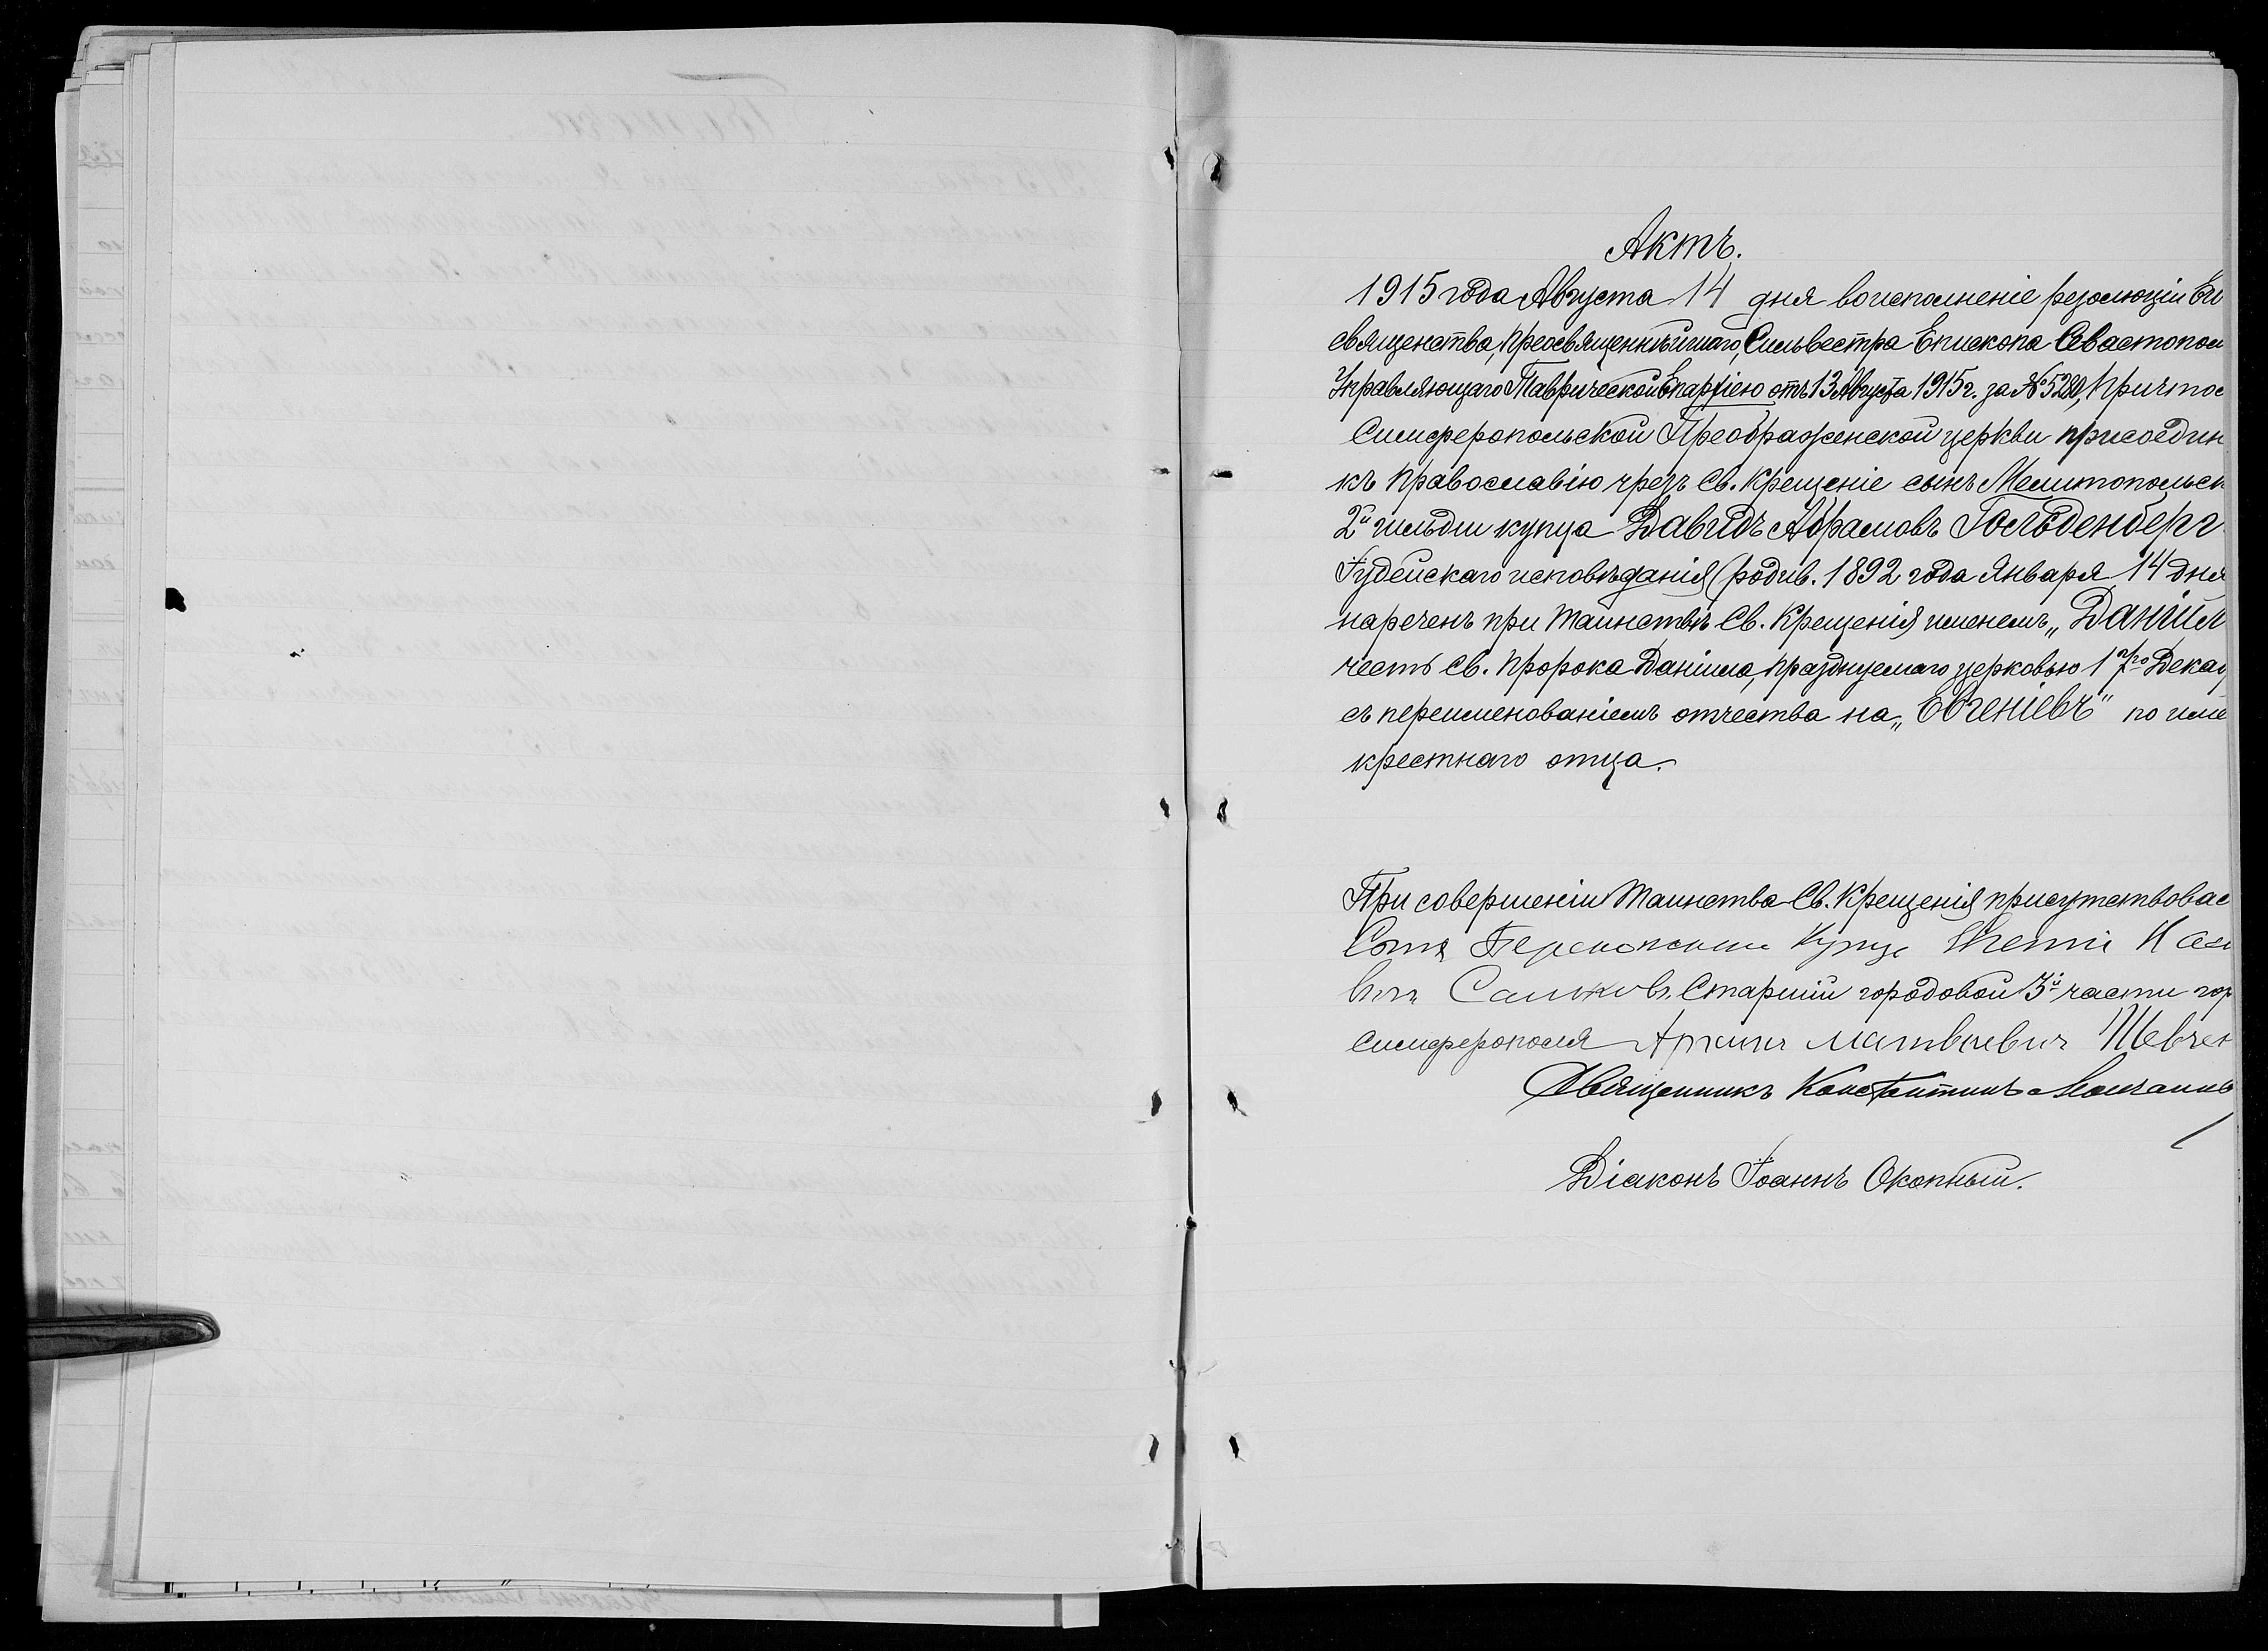 Актъ.
1915 года Августа 14 дня во исполненіе резолюціи Ег
священства, Преосвященнѣйшаго, Сильвестра Епископа Севастопол
Управляющаго Таврической Епархіею отъ 13 Августа 1915 г. за № 5280, Причто
Симферопольской Преображенской церкви присоедин
къ Православію чрезъ Св. Крещеніе сынъ Мелитопольск
2й гильдіи купца Давидъ Абрамовъ Гольденберг
Іудейскаго исповѣданія (родив. 1892 года Января 14 дня
нареченъ при Таинствѣ Св. Крещенія именемъ „Даніил
честь Св. Пророка Даніила, празднуемаго церковью 17го Декаб
съ переименованіемъ отчества на „Евгеніевъ" по име
крестнаго отца.
При совершеніи Таинства Св. Крещенія присутствовал
Сынъ купца Евгеній
Старшій городовой 3й части гор
Симферополя Матвѣевичъ Шевчен
Священникъ Константинъ
Діаконъ Іоаннъ Окопный.